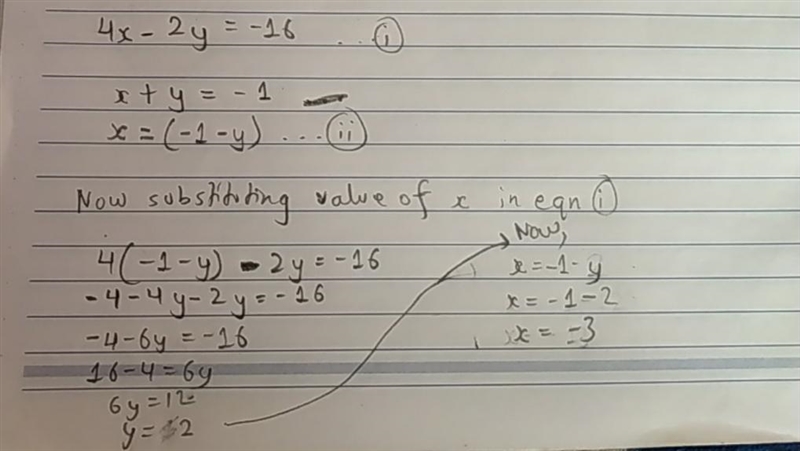 4x - 2y = -16 ... (i)
x + y = -1
x = (-1 - y) ... (ii)
Now substituting value of x in eqn (i)
4(-1 - y) - 2y = -16
-4 - 4y - 2y = -16
-4 - 6y = -16
16 - 4 = 6y
6y = 12
y = 2
Now,
x = -1 - y
x = -1 - 2
x = -3